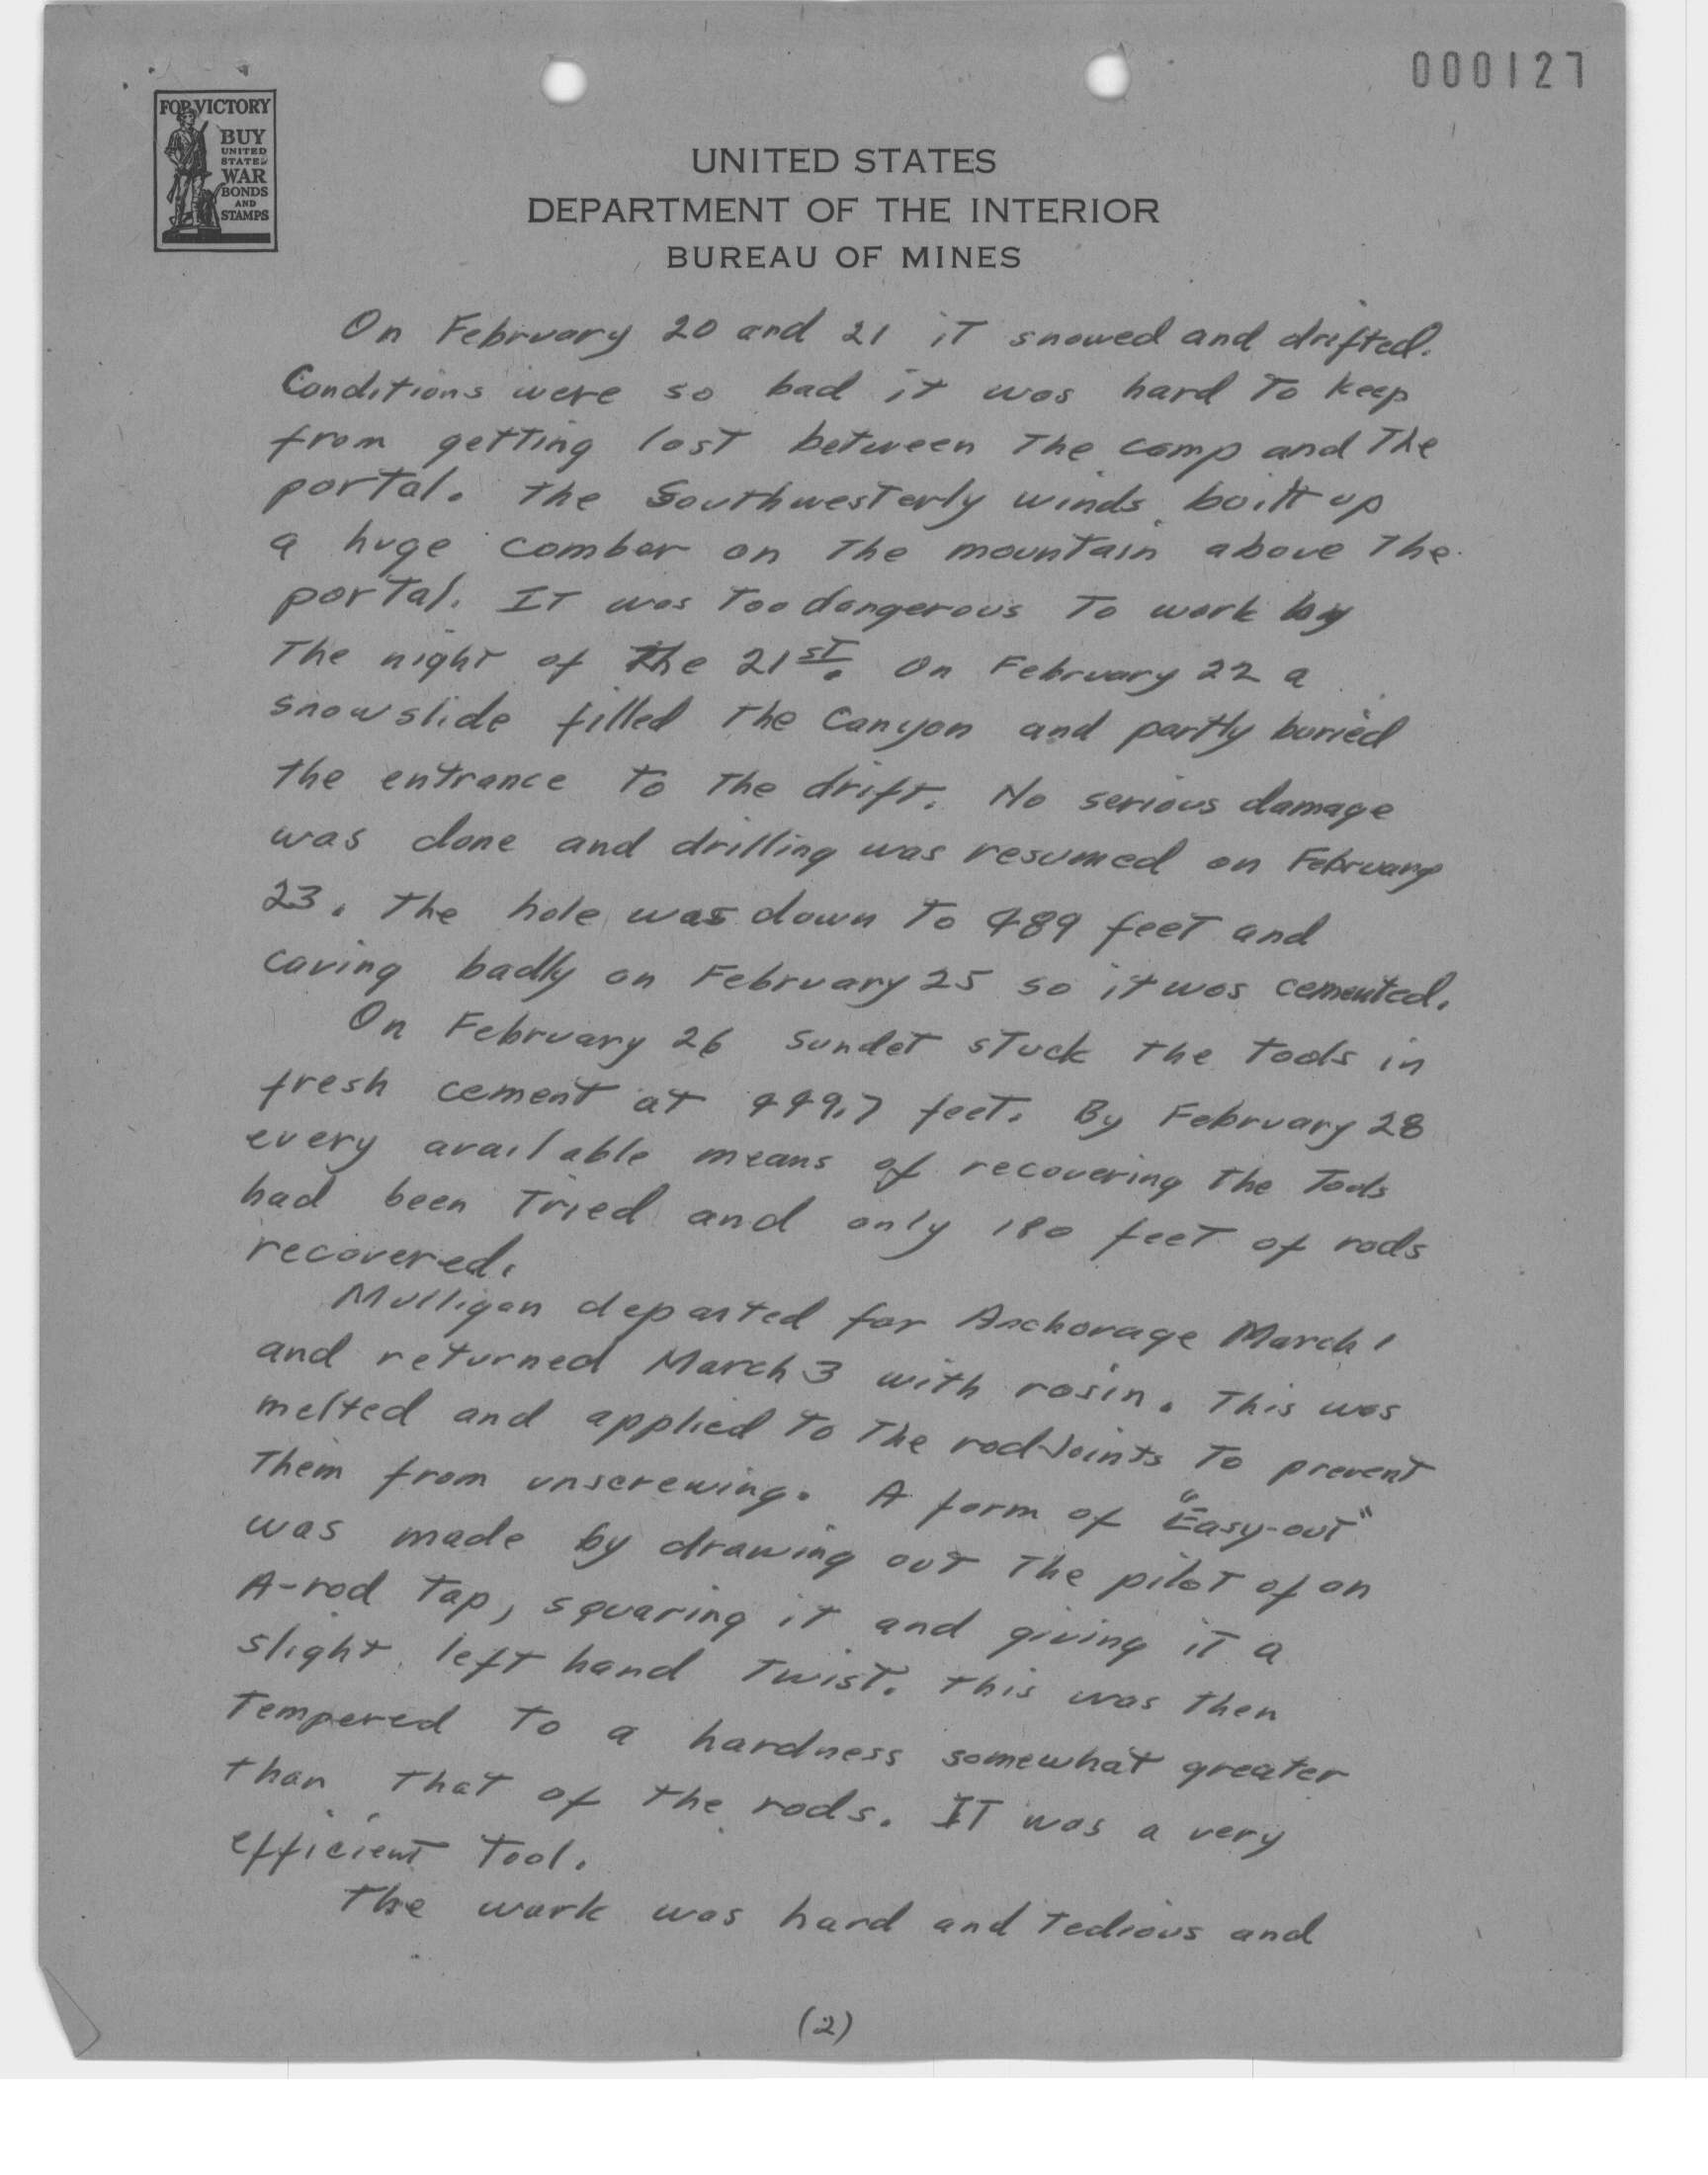 000127
FOR VICTORY
BUY
UNITED
STATES
WAR
BONDS
AND
STAMPS
UNITED STATES
DEPARTMENT OF THE INTERIOR
BUREAU OF MINES
On February 20 and 21 it snowed and drifted.
Conditions were so bad it was hard to keep
from getting lost between the camp and the
portal. The Southwesterly winds built up
a huge comber on the mountain above the
portal. It was too dangerous to work by
the night of the 21st. On February 22 a
snowslide filled the Canyon and partly buried
the entrance to the drift. No serious damage
was done and drilling was resumed on February
23. The hole was down to 489 feet and
caving badly on February 25 so it was cemented.
On February 26 Sundet stuck the tools in
fresh cement at 449.7 feet. By February 28
every available means of recovering the tools
had been tried and only 180 feet of rods
recovered.
Mulligan departed for Anchorage March 1
and returned March 3 with rosin. This was
melted and applied to the rod joints to prevent
them from unscrewing. A form of "Easy-out"
was made by drawing out the pilot of an
A-rod tap, squaring it and giving it a
slight left hand twist. This was then
tempered to a hardness somewhat greater
than that of the rods. It was a very
efficient tool.
The work was hard and tedious and
(2)